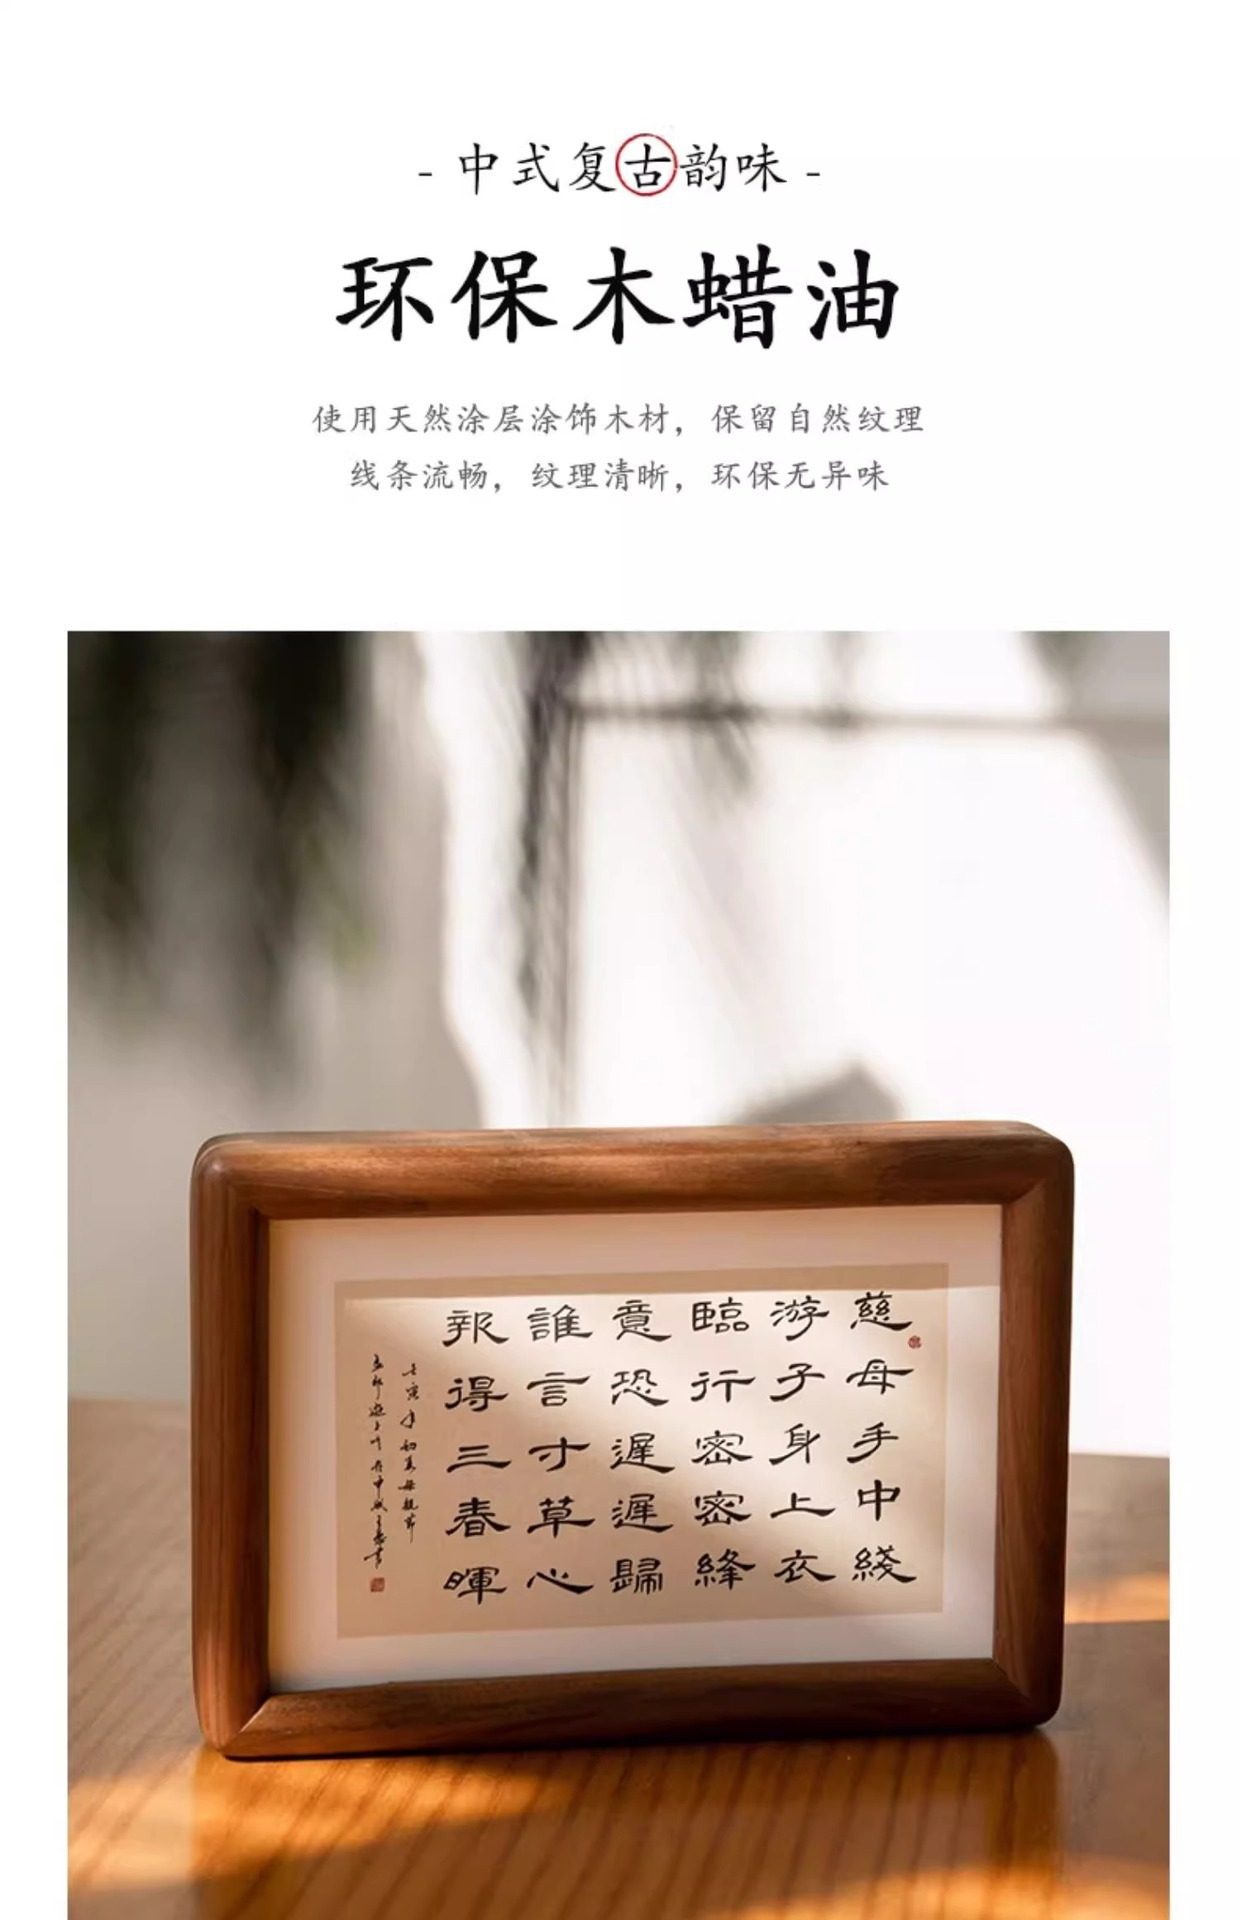 - 中式复古韵味 -
环保木蜡油
使用天然涂层涂饰木材，保留自然纹理
线条流畅，纹理清晰，环保无异味
慈母手中綫
游子身上衣
臨行密密縫
意恐遲遲歸
誰言寸草心
報得三春暉
壬寅年初夏母親節